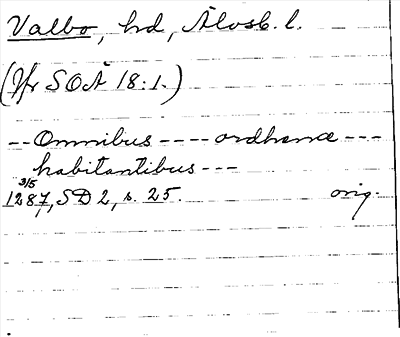 Valbo, hd, Älvsb. l.
(Jfr SOÄ 18:1.)
-- Omnibus ---- ordhence ---
habitantibus ---
3/5
1287, SD 2, s. 25. orig.